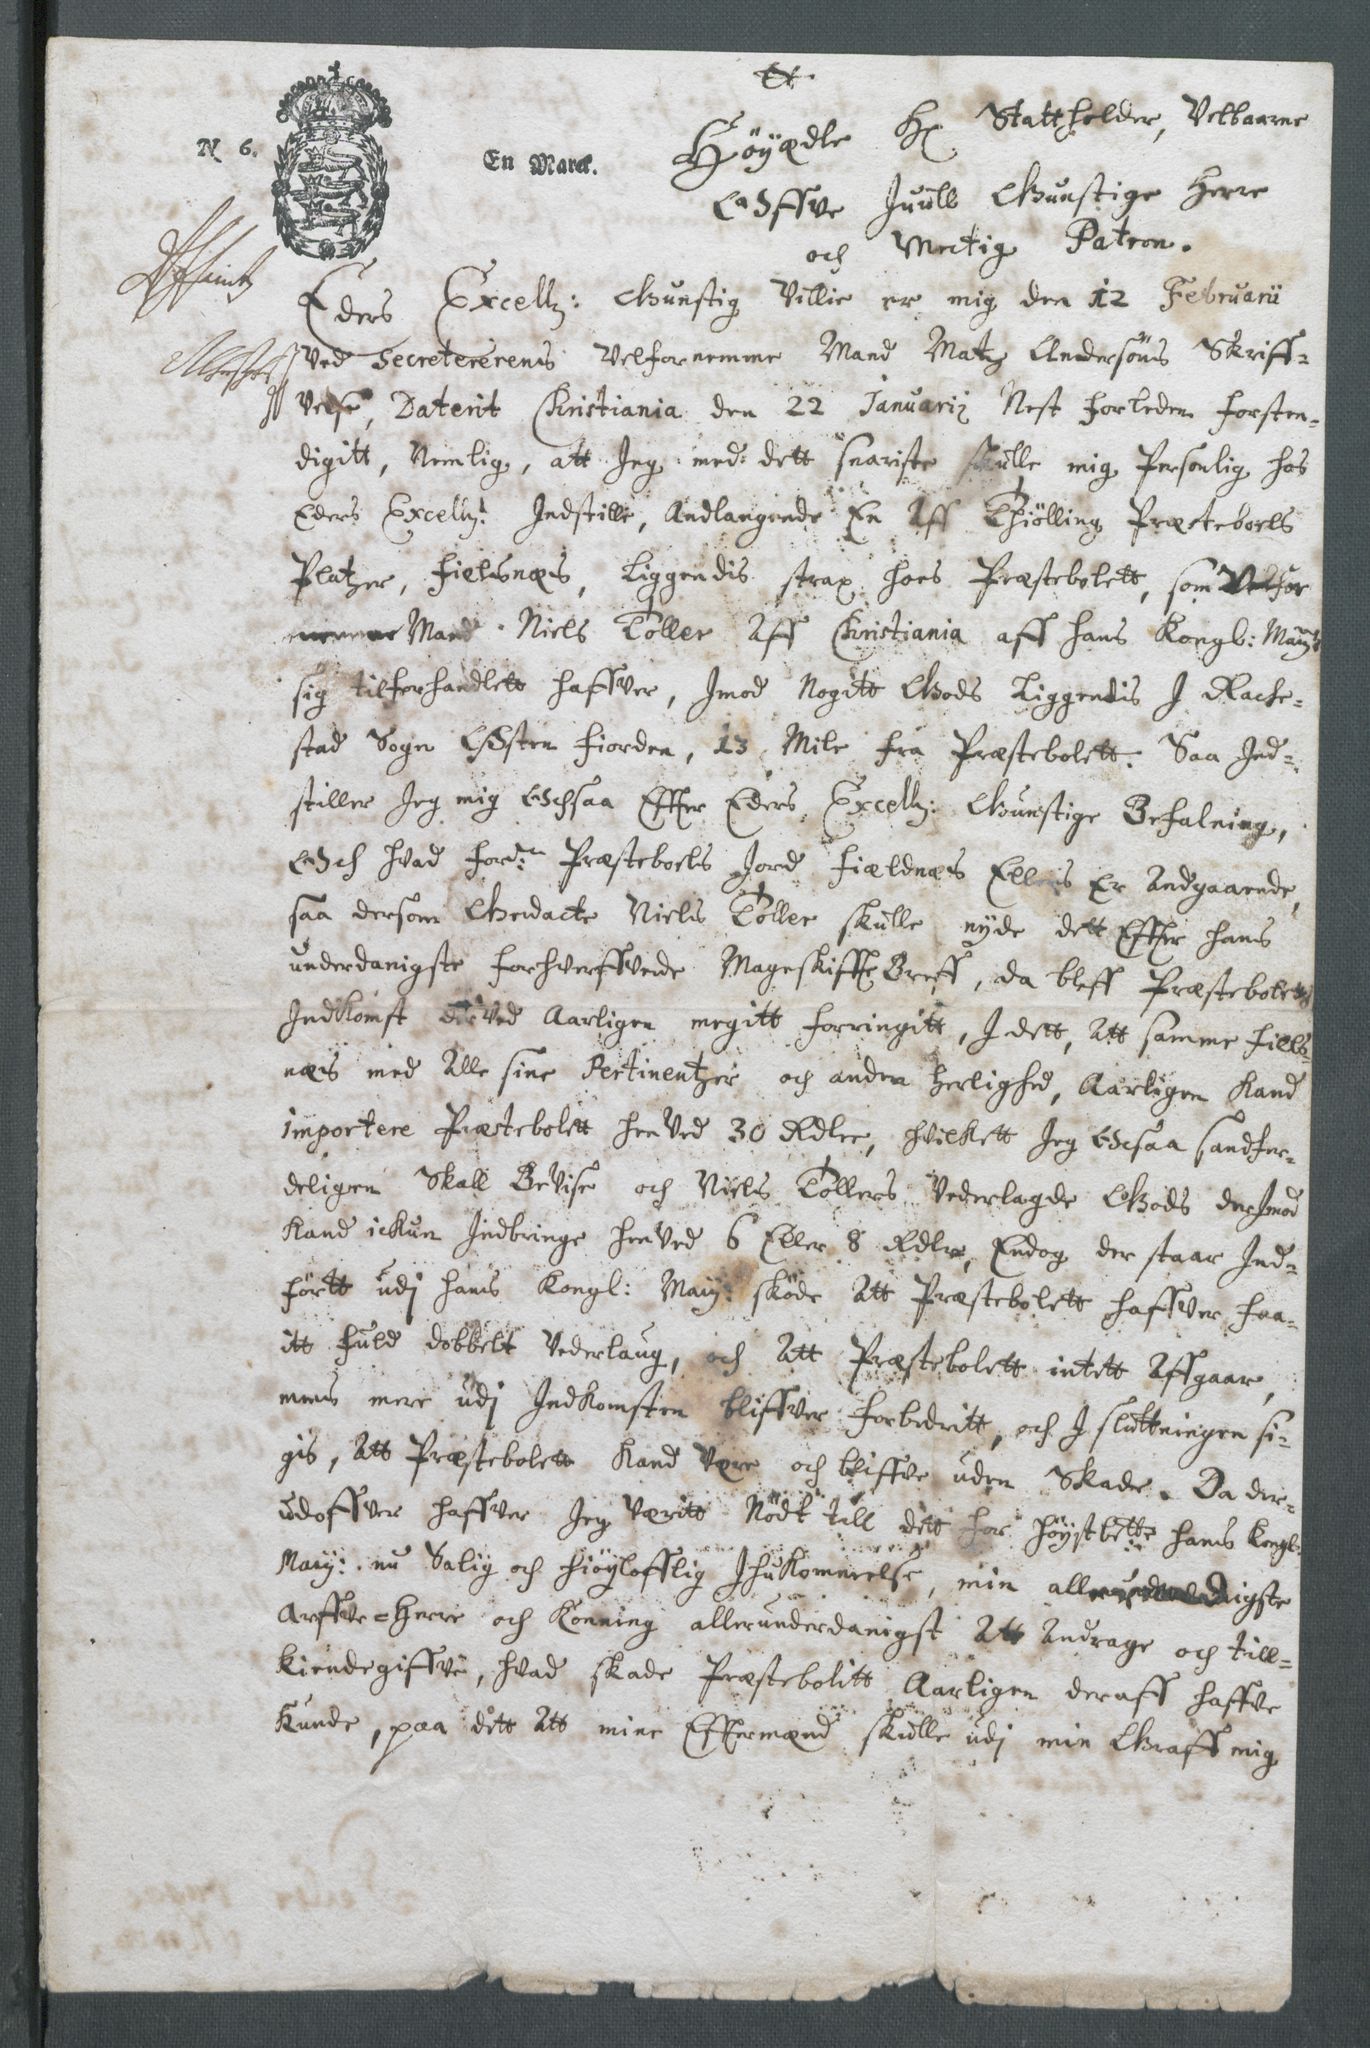 N 6.
En Marck.
Höÿædle Hr Stattholder, Velbaarne
Offve Juull Gunstige Herre
och Mectig Patron.
Eders Excell: Gunstig Villie er mig den 12 Februarii
Ved Secretererens Velfornemme Mand Matz Andersöns Skriff-
velse, Daterit Christiania den 22 Januarij Nest forleden forsten-
digitt, Nemlig, att Jeg med dett snariste skulle mig Personlig hos
Eders Excell: Indstille, Andlangende En Aff Thiölling Præsteboels
Platzer, Fielsnæs, Liggendis strax hoes Præstebolett, som Velfor
nemme Mand Niels Toller Aff Christiania aff hans Kongl: Maÿ:
sig tilforhandlett haffver, Imod Nogitt Gods Liggendis J Rache-
stad Sogn Østen fiorden, 13 Mile fra Præstebolett. Saa Ind-
stiller Jeg mig Ochsaa Effter Eders Excell: Gunstige Befalning,
Och hvad ford: Præsteboels Jord Fieldnæs Ellers Er Andgaaende,
saa dersom Bemdacte Niels Toller skulle nÿde dett Effter hans
underdanigste forhverffvede Mageskiffte Breff, da bleff Præstebolets
Indkomst derved Aarligen megitt forringitt, J dett, Att samme Fiells-
næs med Alle sine Pertinentzer och anden Herlighed, Aarligen Kand
importere Præstebolett hen Ved 30 Rdler, hvilkett Jeg Ochsaa sandfer-
deligen Skall Bevise och Niels Tollers Vederlagde Gods der Imod
Kand ickun Indbringe hen Ved 6 Eller 8 Rdlr, Endog der staar Ind-
förtt udj hans Kongl: Maÿ: sköde Att Præstebolett haffver faa-
itt fuld dobbelt Vederlaug, och Att Præstebolett intett Affgaar,
mens mere udj Indkomsten bliffver forbedritt, och J sluttningen si-
gis, Att Præstebolett Kand Være och bliffve uden Skade. Da der-
udoffver haffver Jeg Væritt Nödt till dett for höÿstbe:te hans Kongl:
Maÿ: nu Salig och Höÿlofflig Ihukommelse, min allerunderdanigste
Arffve-Herre och Konning allerunderdanigst Att Andrage och till-
kiendegiffve, hvad skade Præstebolitt Aarligen deraff haffve
Kunde, paa dett Att mine Efftermænd skulle udj min Graff mig